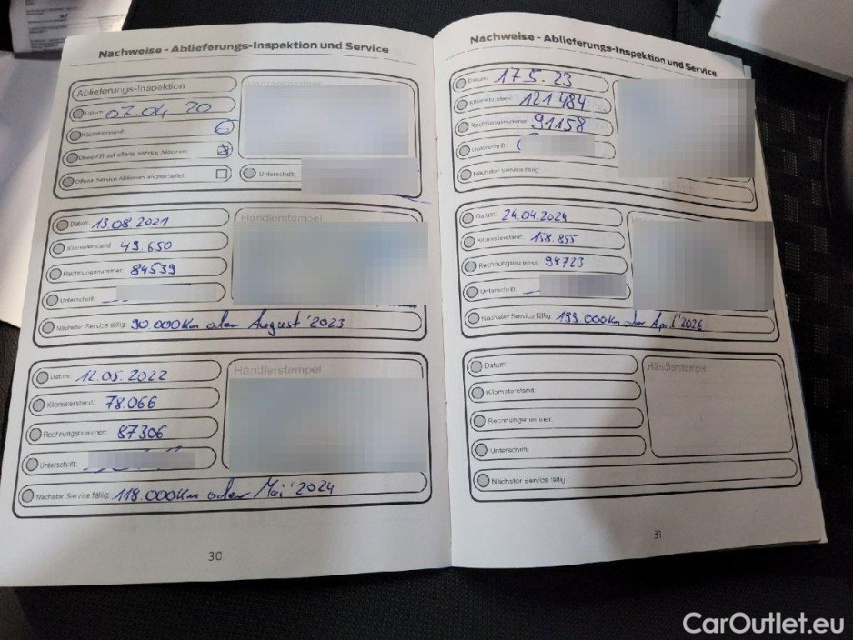 Nachweise - Ablieferungs-Inspektion und Service
Ablieferungs-Inspektion
Datum: 02.04.20
Kilometerstand: 6
Überprüft auf offene Service Aktionen:
Offene Service Aktionen
Unterschrift:
Datum: 13.08.2021
Händlerstempel
Kilometerstand: 49.650
Rechnungsnummer: 84539
Unterschrift:
Nächster Service fällig: 90.000km oder August '2023
Datum: 12.05.2022
Händlerstempel
Kilometerstand: 78.066
Rechnungsnummer: 87306
Unterschrift:
Nächster Service fällig: 118.000km oder Mai '2024
30
Nachweise - Ablieferungs-Inspektion und Service
Datum: 17.5.23
Kilometerstand: 121484
Rechnungsnummer: 91158
Unterschrift:
Nächster Service fällig:
Datum: 24.04.2024
Kilometerstand: 158.855
Rechnungsnummer: 94723
Unterschrift:
Nächster Service fällig: 199.000km oder April '2026
Datum:
Händlerstempel
Kilometerstand:
Rechnungsnummer:
Unterschrift:
Nächster Service fällig:
31
CarOutlet.eu